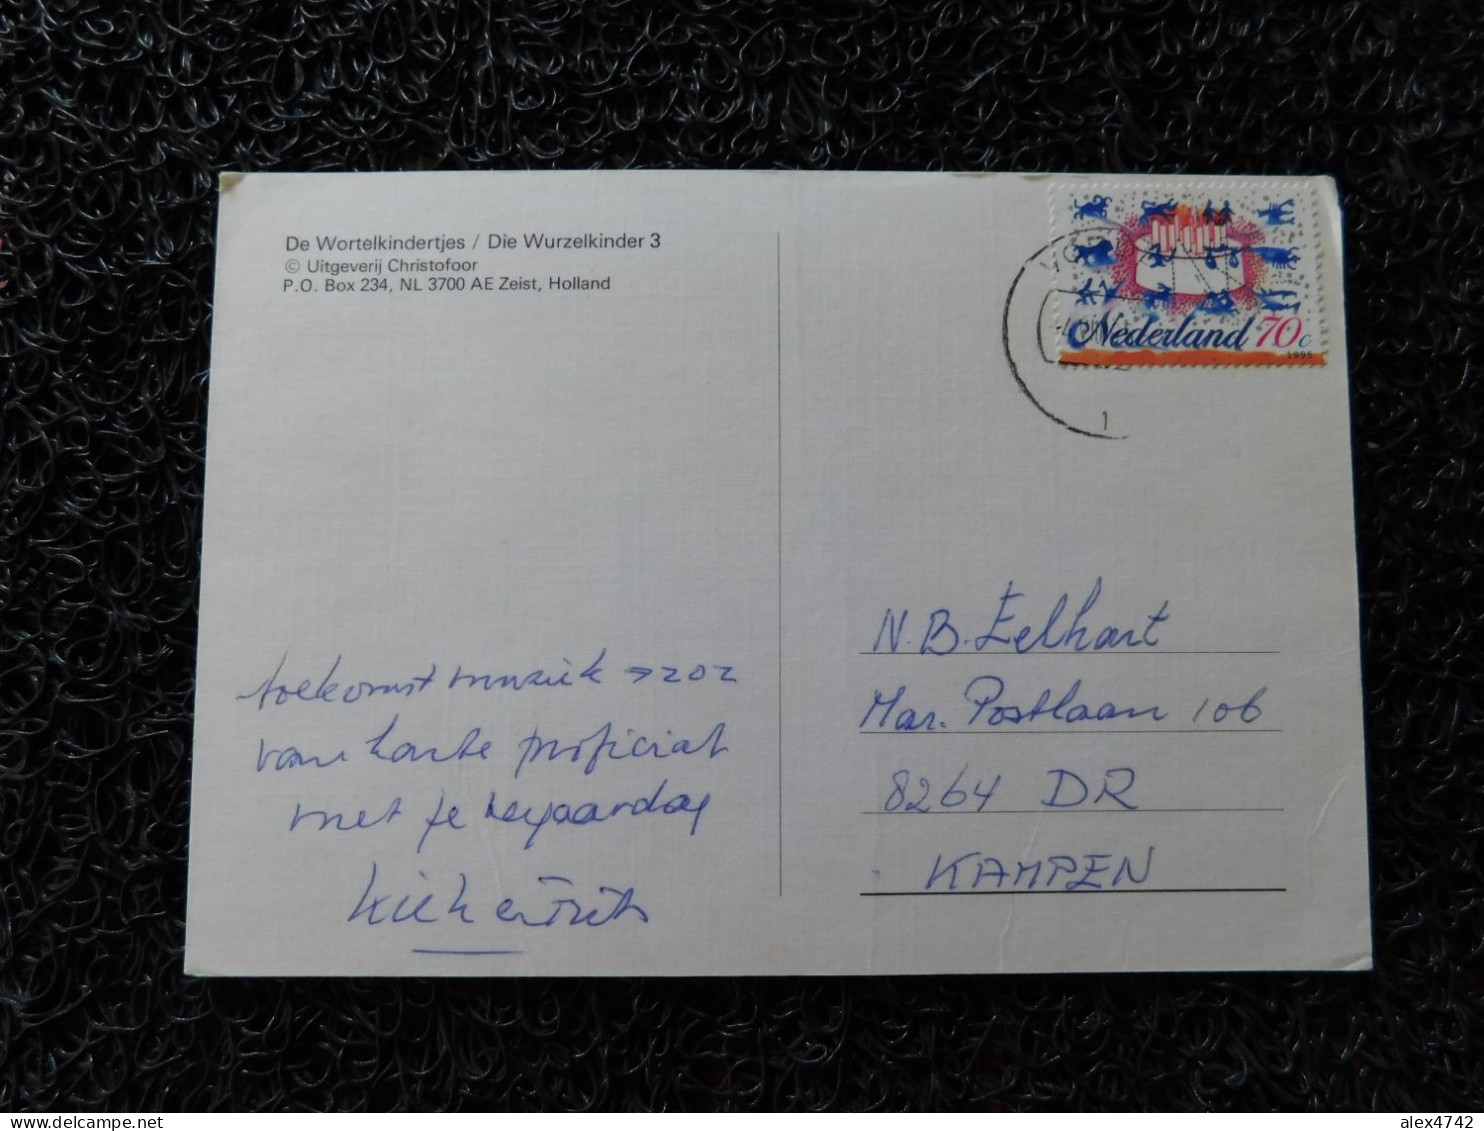 De Wortelkindertjes / Die Wurzelkinder 3
© Uitgeverij Christofoor
P.O. Box 234, NL 3700 AE Zeist, Holland
Nederland 70c
1995
1
toekomst muziek → 202
van harte proficiat
met je verjaardag
en Frits
N.B. Eelhart
Mar. Postlaan 106
8264 DR
KAMPEN
alex4742